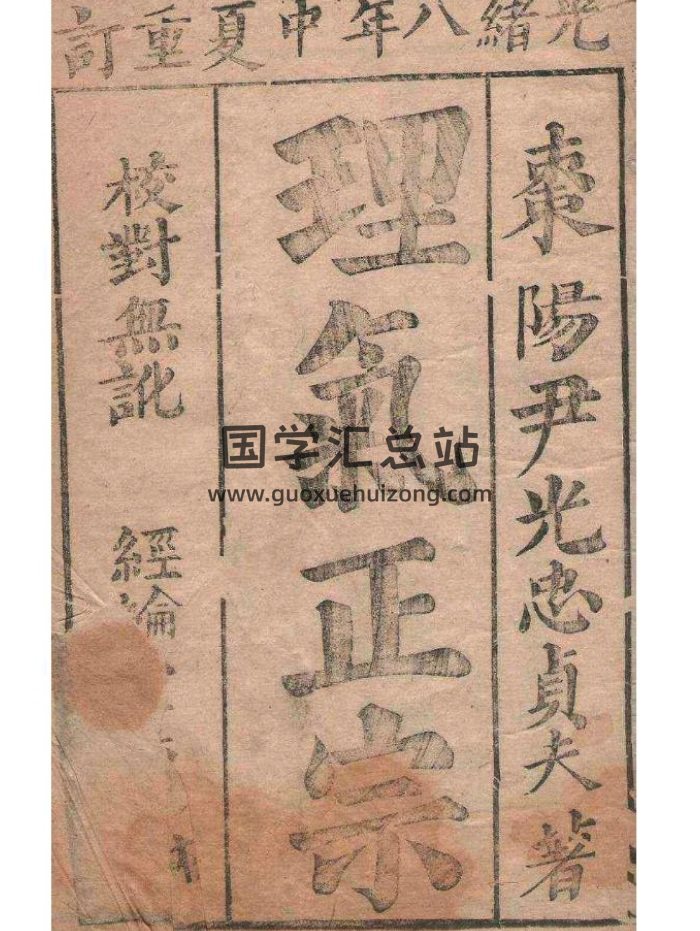 光緒八年中夏重訂
棗陽尹光忠貞夫著
理氣正宗
校對無訛 經綸
国学汇总站
www.guoxuehuizong.com